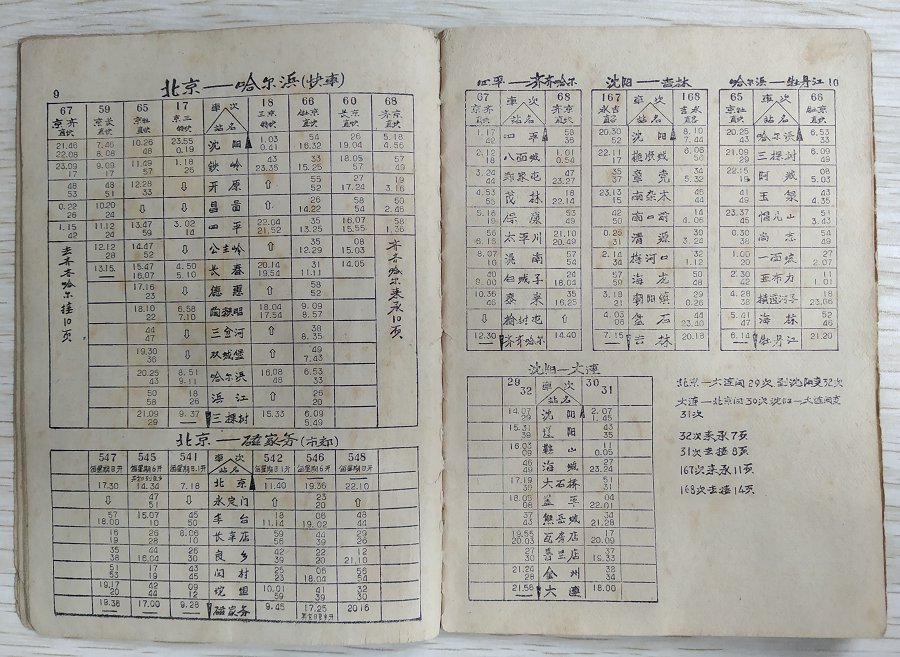 9
北京——哈尔滨(快车)
67 59 65 17 車次 18 66 60 68
站名
21.46 7.46 10.26 23.55 沈阳 1.03 54 26 5.18
22.08 8.08 48 0.19 0.41 16.32 19.04 4.56
23.09 9.09 11.49 1.18 鉄岭 43 33 18.05 57
17 17 57 26 23.35 15.25 57 49
48 48 12.28 ⇩ 开原 ⇧ 55 27 19
53 51 33 52 17.24 3.16
0.22 10.20 ⇩ ⇩ 昌图 ⇧ 26 58 50
26 24 14.22 54 2.46
1.15 11.12 13.47 3.02 四平 22.04 35 16.07 58
42 24 59 14 21.52 13.25 15.55 1.36
12.12 14.47 ⇩ 公主岭 ⇧ 35 08
28 52 12.29 15.03
13.15 15.47 4.50 长春 20.14 31 14.05
16.07 5.10 19.54 11.11
17.16 ⇩ 德惠 ⇧ 58
23 52
18.10 6.58 陶赖昭 18.04 9.09
22 7.10 17.54 8.57
44 ⇩ 三岔河 ⇧ 38
47 8.35
19.30 ⇩ 双城堡 ⇧ 49
36 7.43
20.25 8.51 哈尔滨 16.08 53
43 9.11 48 6.33
50 18 浜江 ⇧ 26
58 26 20
21.09 9.37 三棵树 15.33 6.09
5.49
去齐齐哈尔挂10页
齐齐哈尔来承10页
北京——磁家务(市郊)
547 545 541 車次 542 546 548
站名
17.30 14.34 7.18 北京 11.40 19.36 22.10
⇩ 47 ⇩ 永定门 ⇧ 23 ⇧
51 20
57 15.07 45 丰台 18 06 48
18.00 10 50 11.14 19.02 44
16 26 8.06 长辛店 59 44 29
19 28 10 56 39 26
35 44 26 良乡 42 22 12
38 16.04 30 39 20 21.10
51 17 43 闫村 26 06 56
53 19 45 23 18.04 54
19.17 42 09 坨里 10.01 41 32
20 44 12 59 39 30
19.38 17.00 9.28 磁家务 9.45 17.25 20.16
四平——齐齐哈尔
67 車次 68
站名
1.17 四平 58
42 36
2.12 八面城 1.01
18 0.54
3.24 郑家屯 47
44 23.27
4.53 茂林 18
55 22.14
5.16 保康 53
19 49
56 太平川 21.10
6.16 20.49
8.07 洮南 57
10 54
40 白城子 24
9.00 18.06
10.36 泰来 35
46 16.25
⇩ 榆树屯 ⇧
12.30 齐齐哈尔 14.40
沈阳——吉林
167 車次 168
站名
20.30 沈阳 8.10
52 7.44
22.11 抚顺城 6.08
17 50
35 章党 34
37 5.32
23.13 南杂木 46
15 44
42 南口前 14
50 4.06
0.25 清源 30
31 3.24
2.14 梅河口 32
34 1.12
57 海龙 50
59 48
3.18 朝阳镇 29
21 0.26
4.28 盘石 44
38 23.40
7.15 吉林 20.18
哈尔滨——牡丹江 10
65 車次 66
站名
20.25 哈尔滨 6.53
43 33
21.09 三棵树 6.09
29 49
22.15 阿城 08
19 5.03
41 玉泉 43
49 4.35
23.37 帽儿山 51
45 3.43
0.30 尚志 54
38 49
1.00 一面坡 27
20 2.07
2.30 亚布力 11
37 1.01
4.28 横道河子 18
36 23.06
5.41 海林 52
47 46
6.14 牡丹江 21.20
沈阳—大连
29 車次 30
32 站名 31
14.07 沈阳 2.07
29 1.45
15.31 辽阳 43
39 35
16.03 鞍山 11
09 0.05
46 海城 27
49 23.24
17.35 大石桥 51
39 31
18.05 盖平 04
08 22.01
37 熊岳城 34
43 21.28
19.55 瓦房店 17
20.03 20.09
27 普兰店 37
30 19.33
21.24 金州 38
28 34
21.58 大连 18.00
北京—大连间29次到沈阳变32次
大连—北京间30次沈阳—大连间变
31次
32次来承7页
31次去挂8页
167次来承11页
168次去挂14页